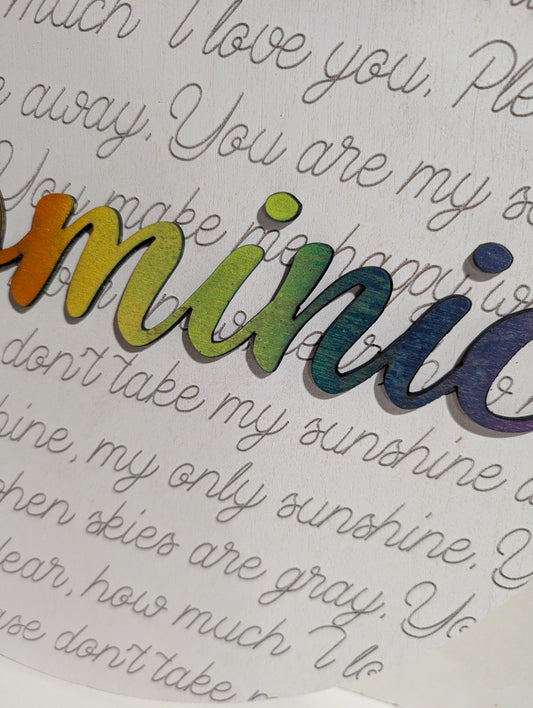 much I love you. Ple
away. You are my s
You make me happy w
ominic
don't take my sunshine a
hine, my only sunshine. Y
when skies are gray. Yo
dear, how much I lo
ase don't take